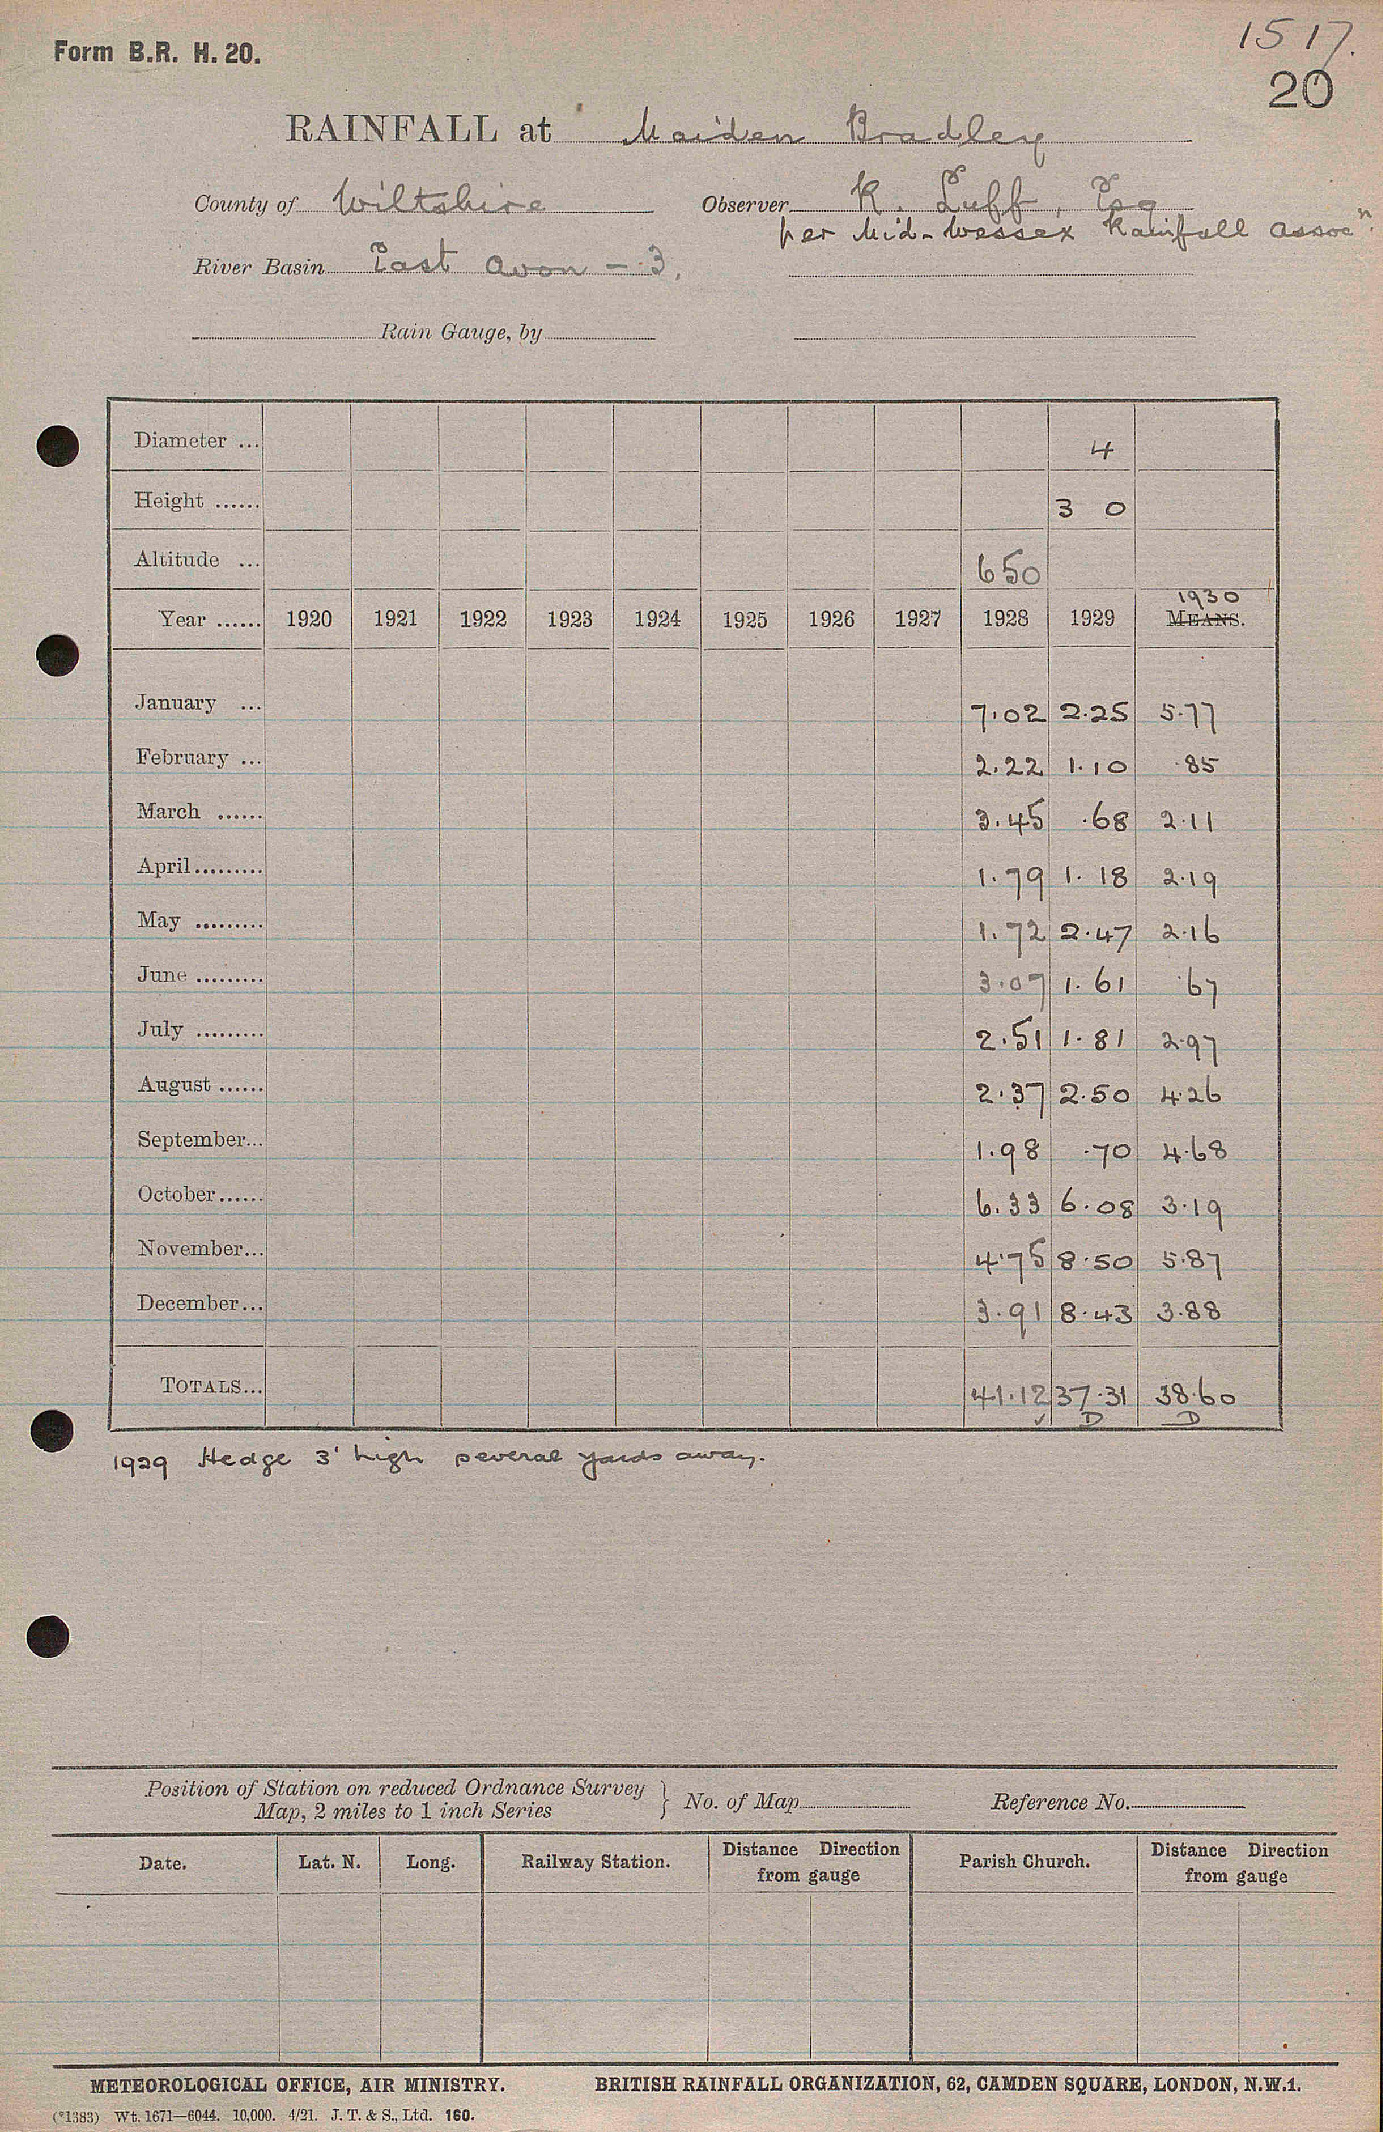 Form B.R. H. 20.
1517.
20
RAINFALL at Maiden Bradley
County of Wiltshire Observer K. Luff, Esq
per Mid-Wessex Rainfall Assocn.
River Basin East Avon - 3.
Rain Gauge, by
Diameter ... 4
Height ...... 3 0
Altitude ... 650
1930
Year ...... 1920 1921 1922 1923 1924 1925 1926 1927 1928 1929 MEANS.
January ... 7.02 2.25 5.77
February ... 2.22 1.10 .85
March ...... 3.45 .68 2.11
April......... 1.79 1.18 2.19
May ......... 1.72 2.47 2.16
June ......... 3.07 1.61 .67
July ......... 2.51 1.81 2.97
August ...... 2.37 2.50 4.26
September... 1.98 .70 4.68
October...... 6.33 6.08 3.19
November... 4.75 8.50 5.87
December... 3.91 8.43 3.88
TOTALS... 41.12 37.31 38.60
✓ D D
1929 Hedge 3' high several yards away.
Position of Station on reduced Ordnance Survey
Map, 2 miles to 1 inch Series } No. of Map Reference No.
Date. Lat. N. Long. Railway Station. Distance Direction from gauge Parish Church. Distance Direction from gauge
METEOROLOGICAL OFFICE, AIR MINISTRY. BRITISH RAINFALL ORGANIZATION, 62, CAMDEN SQUARE, LONDON, N.W.1.
(*1383) Wt. 1671—6044. 10,000. 4/21. J. T. & S., Ltd. 160.